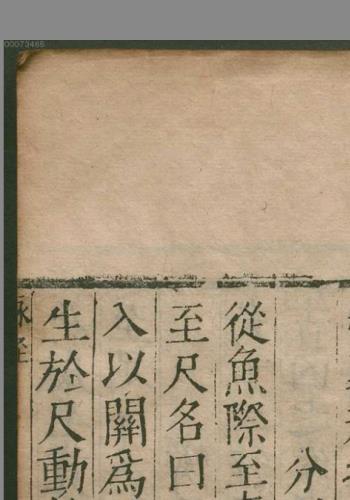 00073465
分
從魚際至
至尺名曰
入以關爲
生於尺動
脉經